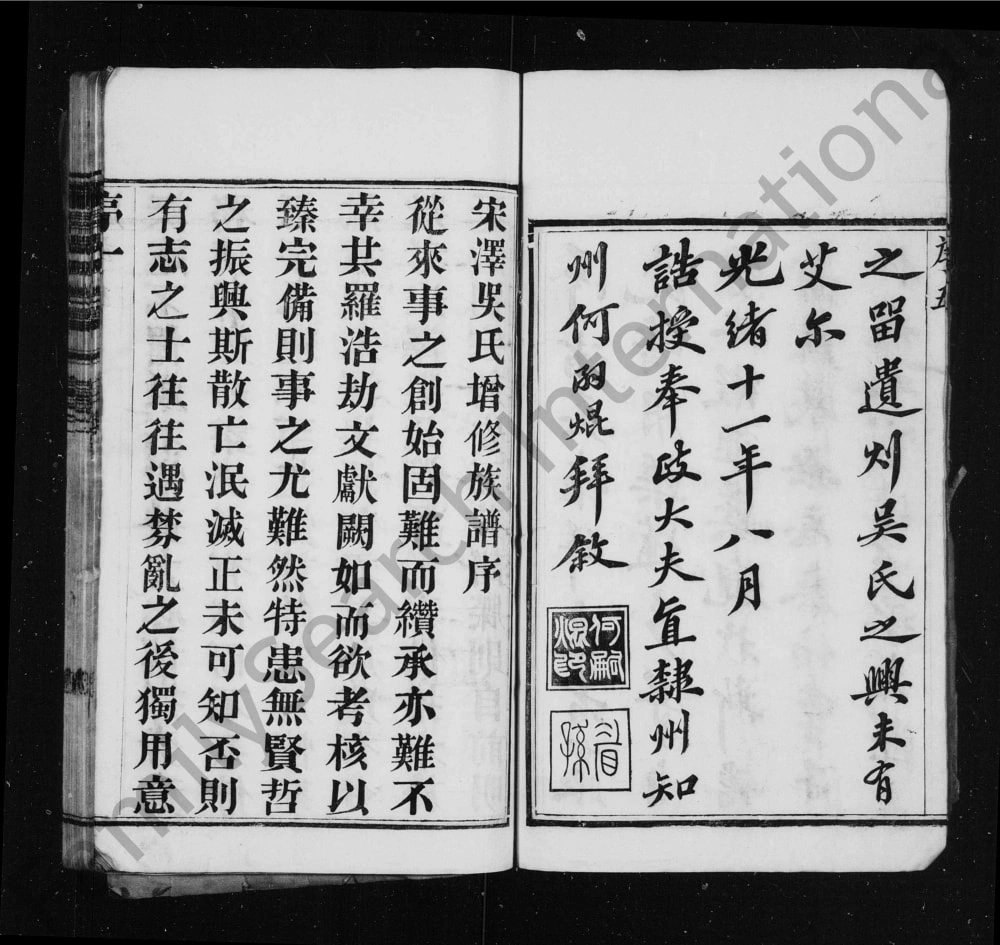 序五
之畱遺刘吴氏之興未有
艾尔
光緒十一年八月
誥授奉政大夫直隸州知
州何嗣焜拜敘
何嗣焜印
眉孫
宋澤吳氏增修族譜序
從來事之創始固難而纘承亦難不
幸共羅浩劫文獻闕如而欲考核以
臻完備則事之尤難然特患無賢哲
之振興斯散亡泯滅正未可知否則
有志之士往往遇棼亂之後獨用意
序一
FamilySearch International